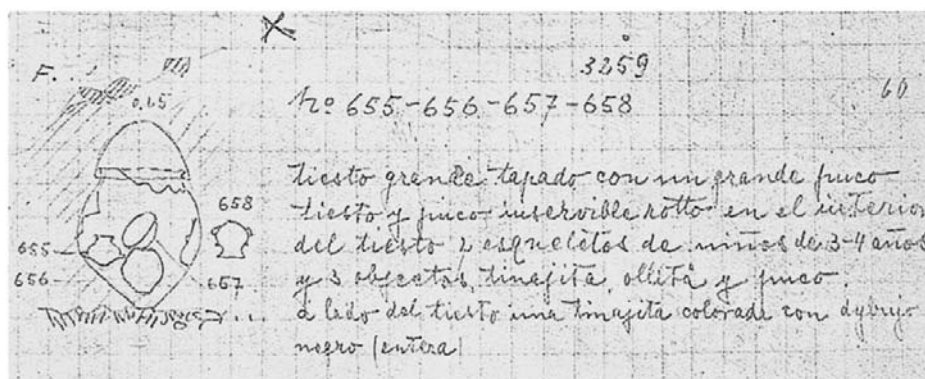 3259
F. . .
60
0,65
nº 655-656-657-658
tiesto grande tapado con un grande puco
tiesto y puco inservible rotto en el interior
658
del tiesto 2 esqueletos de niños de 3-4 años
655
y 3 objectos, tinajita, ollita y puco.
656
657
a lado del tiesto una tinajita colorada con dybujo
negro (entera)